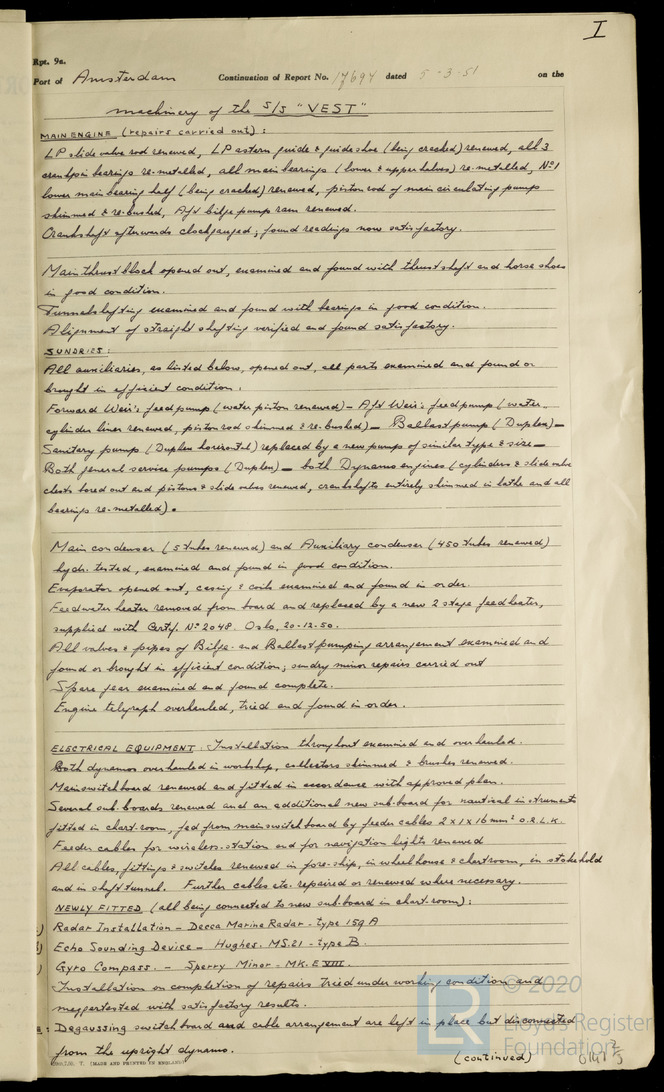 I
Rpt. 9a.
Port of Amsterdam Continuation of Report No. 17694 dated 5-3-51 on the
machinery of the S/S "VEST"
MAIN ENGINE (repairs carried out):
LP slide valve rod renewed, LP astern guide & guide shoe (being cracked) renewed, all 3
crankpin bearings re-metalled, all main bearings (lower & upper halves) re-metalled, No 1
lower main bearing half (being cracked) renewed, piston rod of main circulating pump
skimmed & re-bushed, Aft bilge pump ram renewed.
Crankshaft afterwards clockgauged; found readings now satisfactory.
Main thrust block opened out, examined and found with thrust shaft and horse shoes
in good condition.
Tunnelshafting examined and found with bearings in good condition.
Alignment of straight shafting verified and found satisfactory.
SUNDRIES:
All auxiliaries, as listed below, opened out, all parts examined and found or
brought in efficient condition:
Forward Weir's feed pump (water piston renewed) — Aft Weir's feed pump (water
cylinder liner renewed, piston rod skimmed & re-bushed) — Ballast pump (Duplex) —
Sanitary pump (Duplex horizontal) replaced by a new pump of similar type & size —
Both general service pumps (Duplex) — both Dynamo engines (cylinders & slide valve
chests bored out and pistons & slide valves renewed, crankshafts entirely skimmed in lathe and all
bearings re-metalled).
Main condenser (5 tubes renewed) and Auxiliary condenser (450 tubes renewed)
hydr. tested, examined and found in good condition.
Evaporator opened out, casing & coils examined and found in order.
Feedwater heater removed from board and replaced by a new 2 stage feedheater,
supplied with Certif. No 2048 Oslo, 20-12-50.
All valves & pipes of Bilge- and Ballast pumping arrangement examined and
found or brought in efficient condition; sundry minor repairs carried out
Spare gear examined and found complete.
Engine telegraph overhauled, tried and found in order.
ELECTRICAL EQUIPMENT. Installation throughout examined and overhauled.
Both dynamos overhauled in workshop, collectors skimmed & brushes renewed.
Mainswitchboard renewed and fitted in accordance with approved plan.
Several sub.boards renewed and an additional new sub.board for nautical instruments
fitted in chart-room, fed from mainswitchboard by feeder cables 2x1x16mm² O.R.L.K.
Feeder cables for wireless-station and for navigation lights renewed
All cables, fittings & switches renewed in fore-ship, in wheelhouse & chartroom, in stokehold
and in shaft tunnel. Further cables etc. repaired or renewed where necessary.
NEWLY FITTED (all being connected to new sub.board in chart-room):
Radar Installation — Decca Marine Radar - type 159 A
Echo Sounding Device — Hughes. MS.21 - type B.
Gyro Compass. — Sperry Minor - MK. E VIII.
Installation on completion of repairs tried under working condition and
meggertested with satisfactory results.
Degaussing switchboard and cable arrangement are left in place but disconnected
from the upright dynamo.
(continued)
(MADE AND PRINTED IN ENGLAND)
© 2020
LR
Lloyd's Register
Foundation